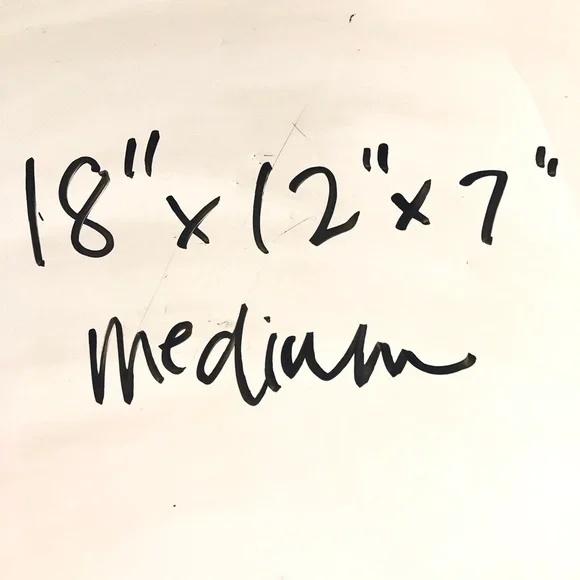 18" x 12" x 7"
medium